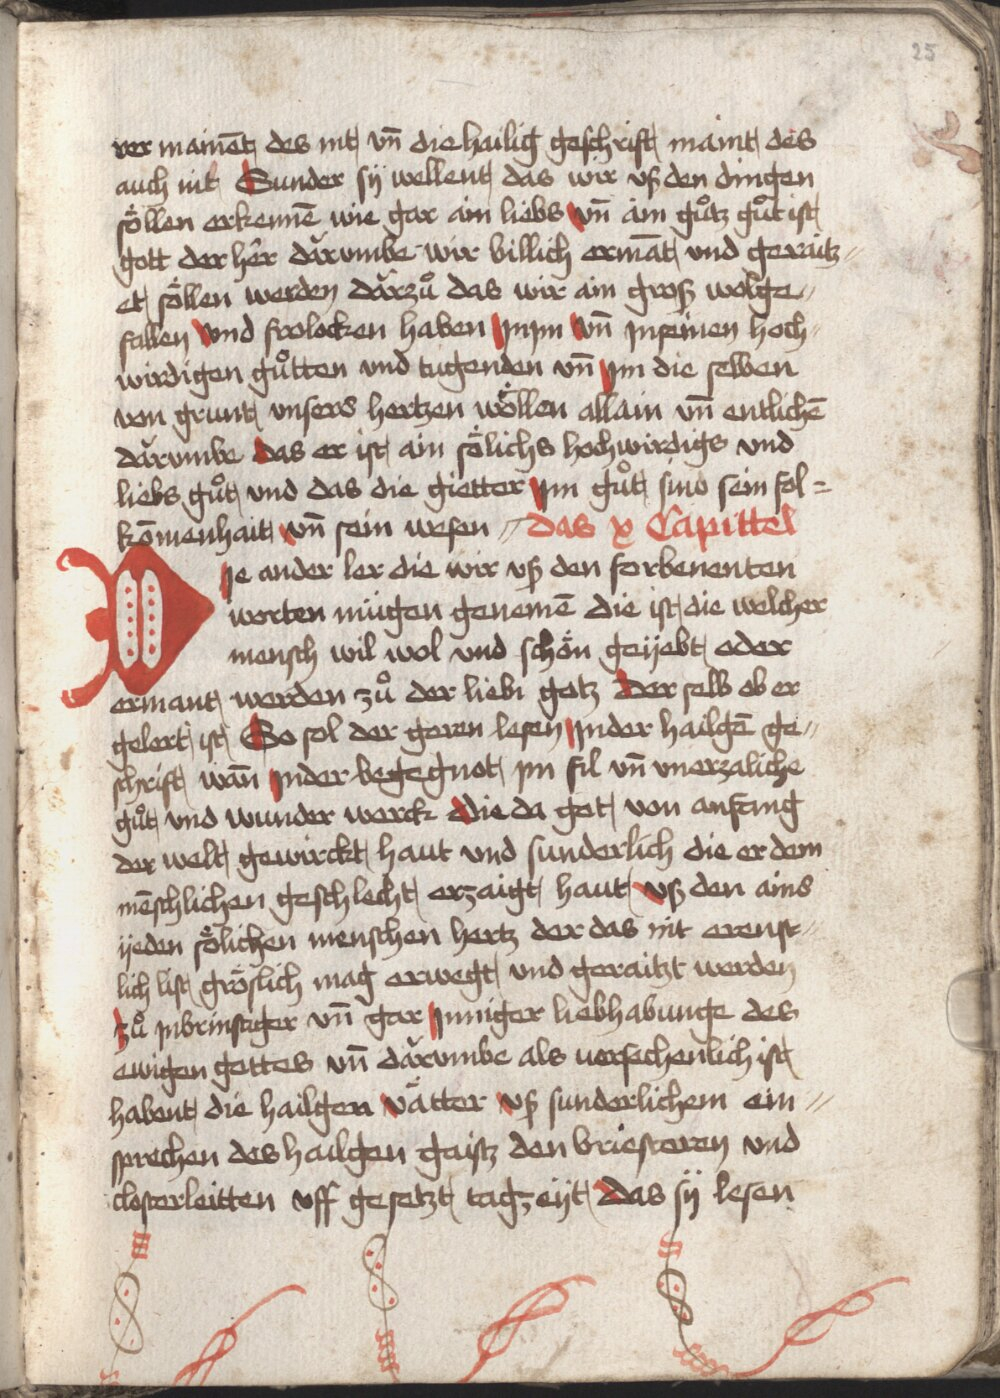 25
rer mainēt des nit vn̄ die hailig geschrift maint des
auch nit Sunder sÿ wellent das wir vß den dingen
söllen erkennē wie gar ain liebs vn̄ ain gůtz gůt ist
gott der her dărumbe wir billich ermāt und geraitz〃
et söllen werden dărzů das wir ain groß wolge〃
fallen vnd frolocken haben jn jm vn̄ jn seinen hoch〃
wirdigen gůtten vnd tugenden vn̄ jm die selben
von grunt vnsers hertzen wöllen allain vn̄ entlichē
dărumbe das er ist ain sölichs hochwirdigs vnd
liebs gůt vnd das die gietter jm gůt sind sein fol=
kōmenhait vn̄ sein wesen 〃 das x Capittel
Die ander ler die wir vß den forbenenten
worten mügen genemē die ist die welcher
mensch wil wol vnd schön geÿebt oder
ermant werden zů der liebi gotz Der selb ob er
gelert ist So sol der geren lesen jn der hailgē ge〃
schrift wān jn der begegnot jm fil vn̄ vnerzaliche
gůt vnd wunder werck die da got von anfang
der welt gewirckt haut vnd sunderlich die er dem
mēschlichen geschlecht erzaigt haut vß den ains
ÿeden sölichen menschen hertz der das nit erenst〃
lich list gröslich mag erwegt vnd geraitzt werden
zů jnbrinstiger vn̄ gar jnniger liebhabunge des
ewigen gottes vn̄ dărumbe als versechenlich ist
habent die hailgen vätter vß sunderlichem ein〃
sprechen des hailgen gaistz den briesteren vnd
closterleitten vff gesetzt tagzeÿt das sÿ lesen